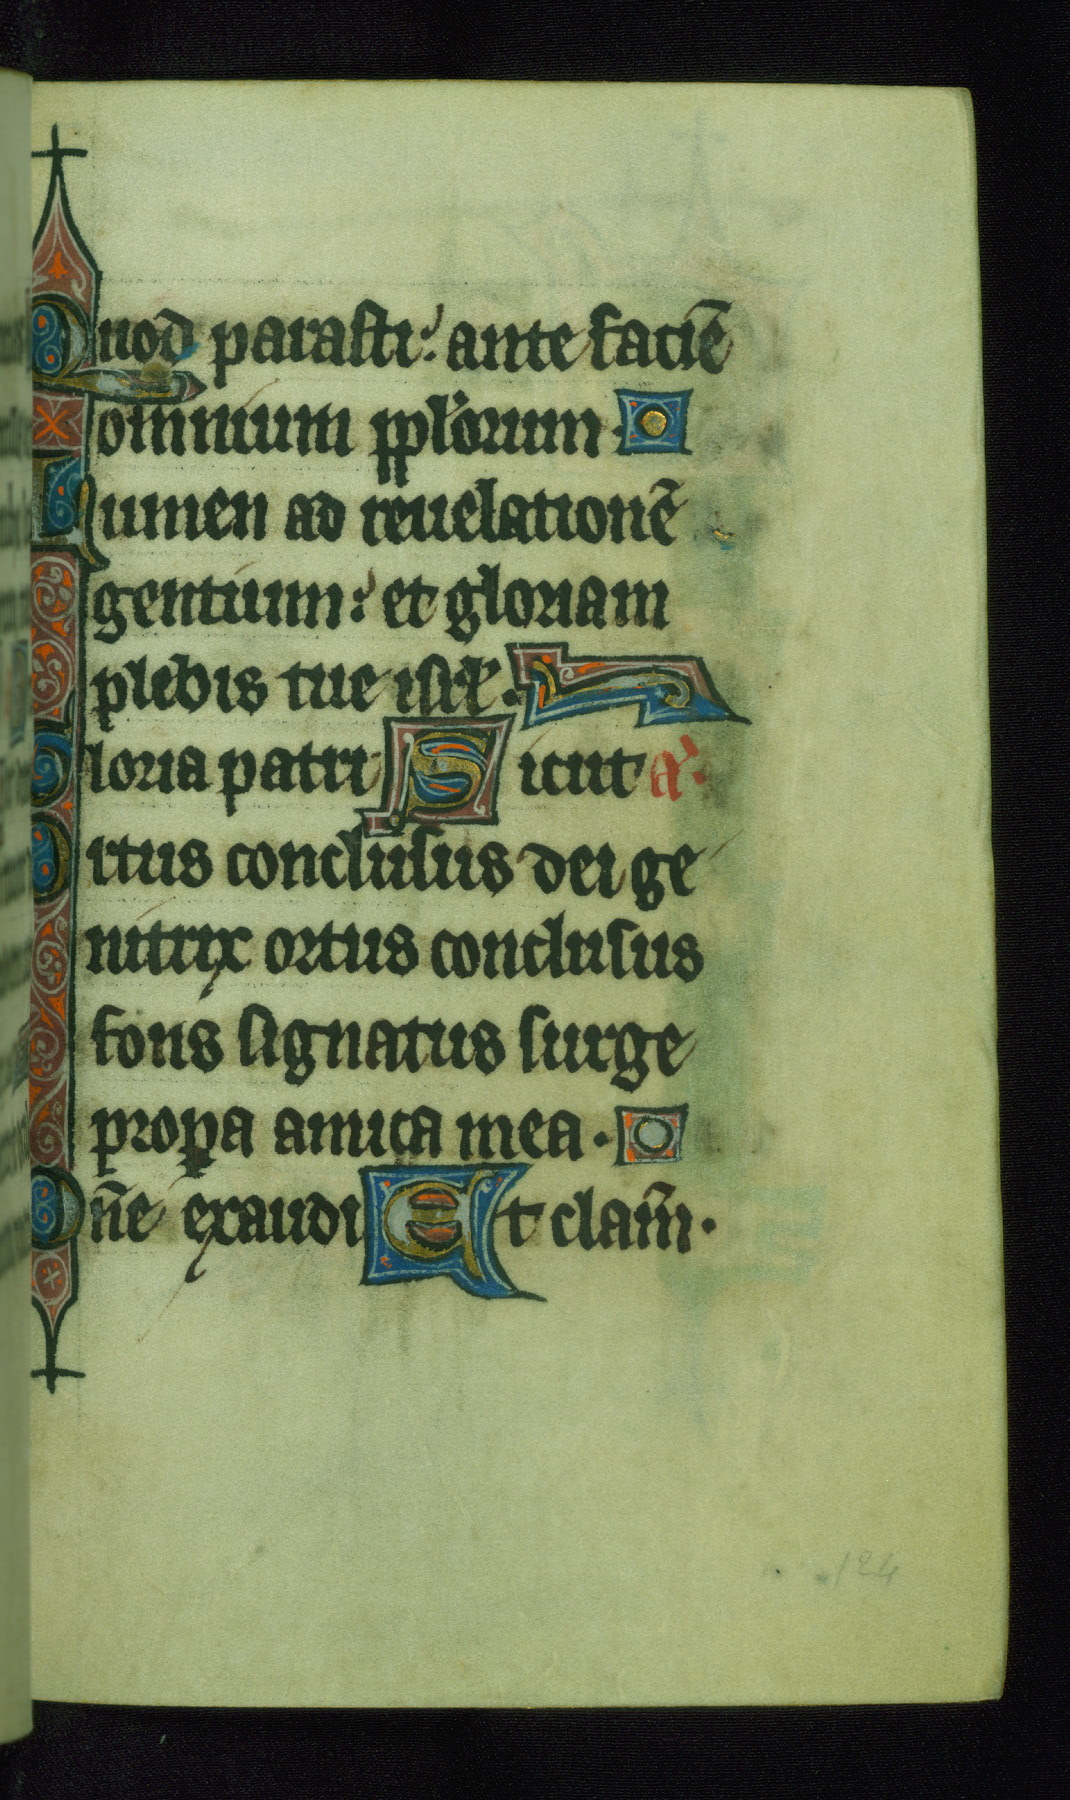 Quod parasti: ante faciē
omnium pplorum.
Lumen ad reuelationē
gentium: et gloriam
plebis tue isrl.
Gloria patri Sicut a.
Ortus conclusus dei ge
nitrix ortus conclusus
fons signatus surge
propa amica mea.
Dñe exaudi Et clam̃.
124